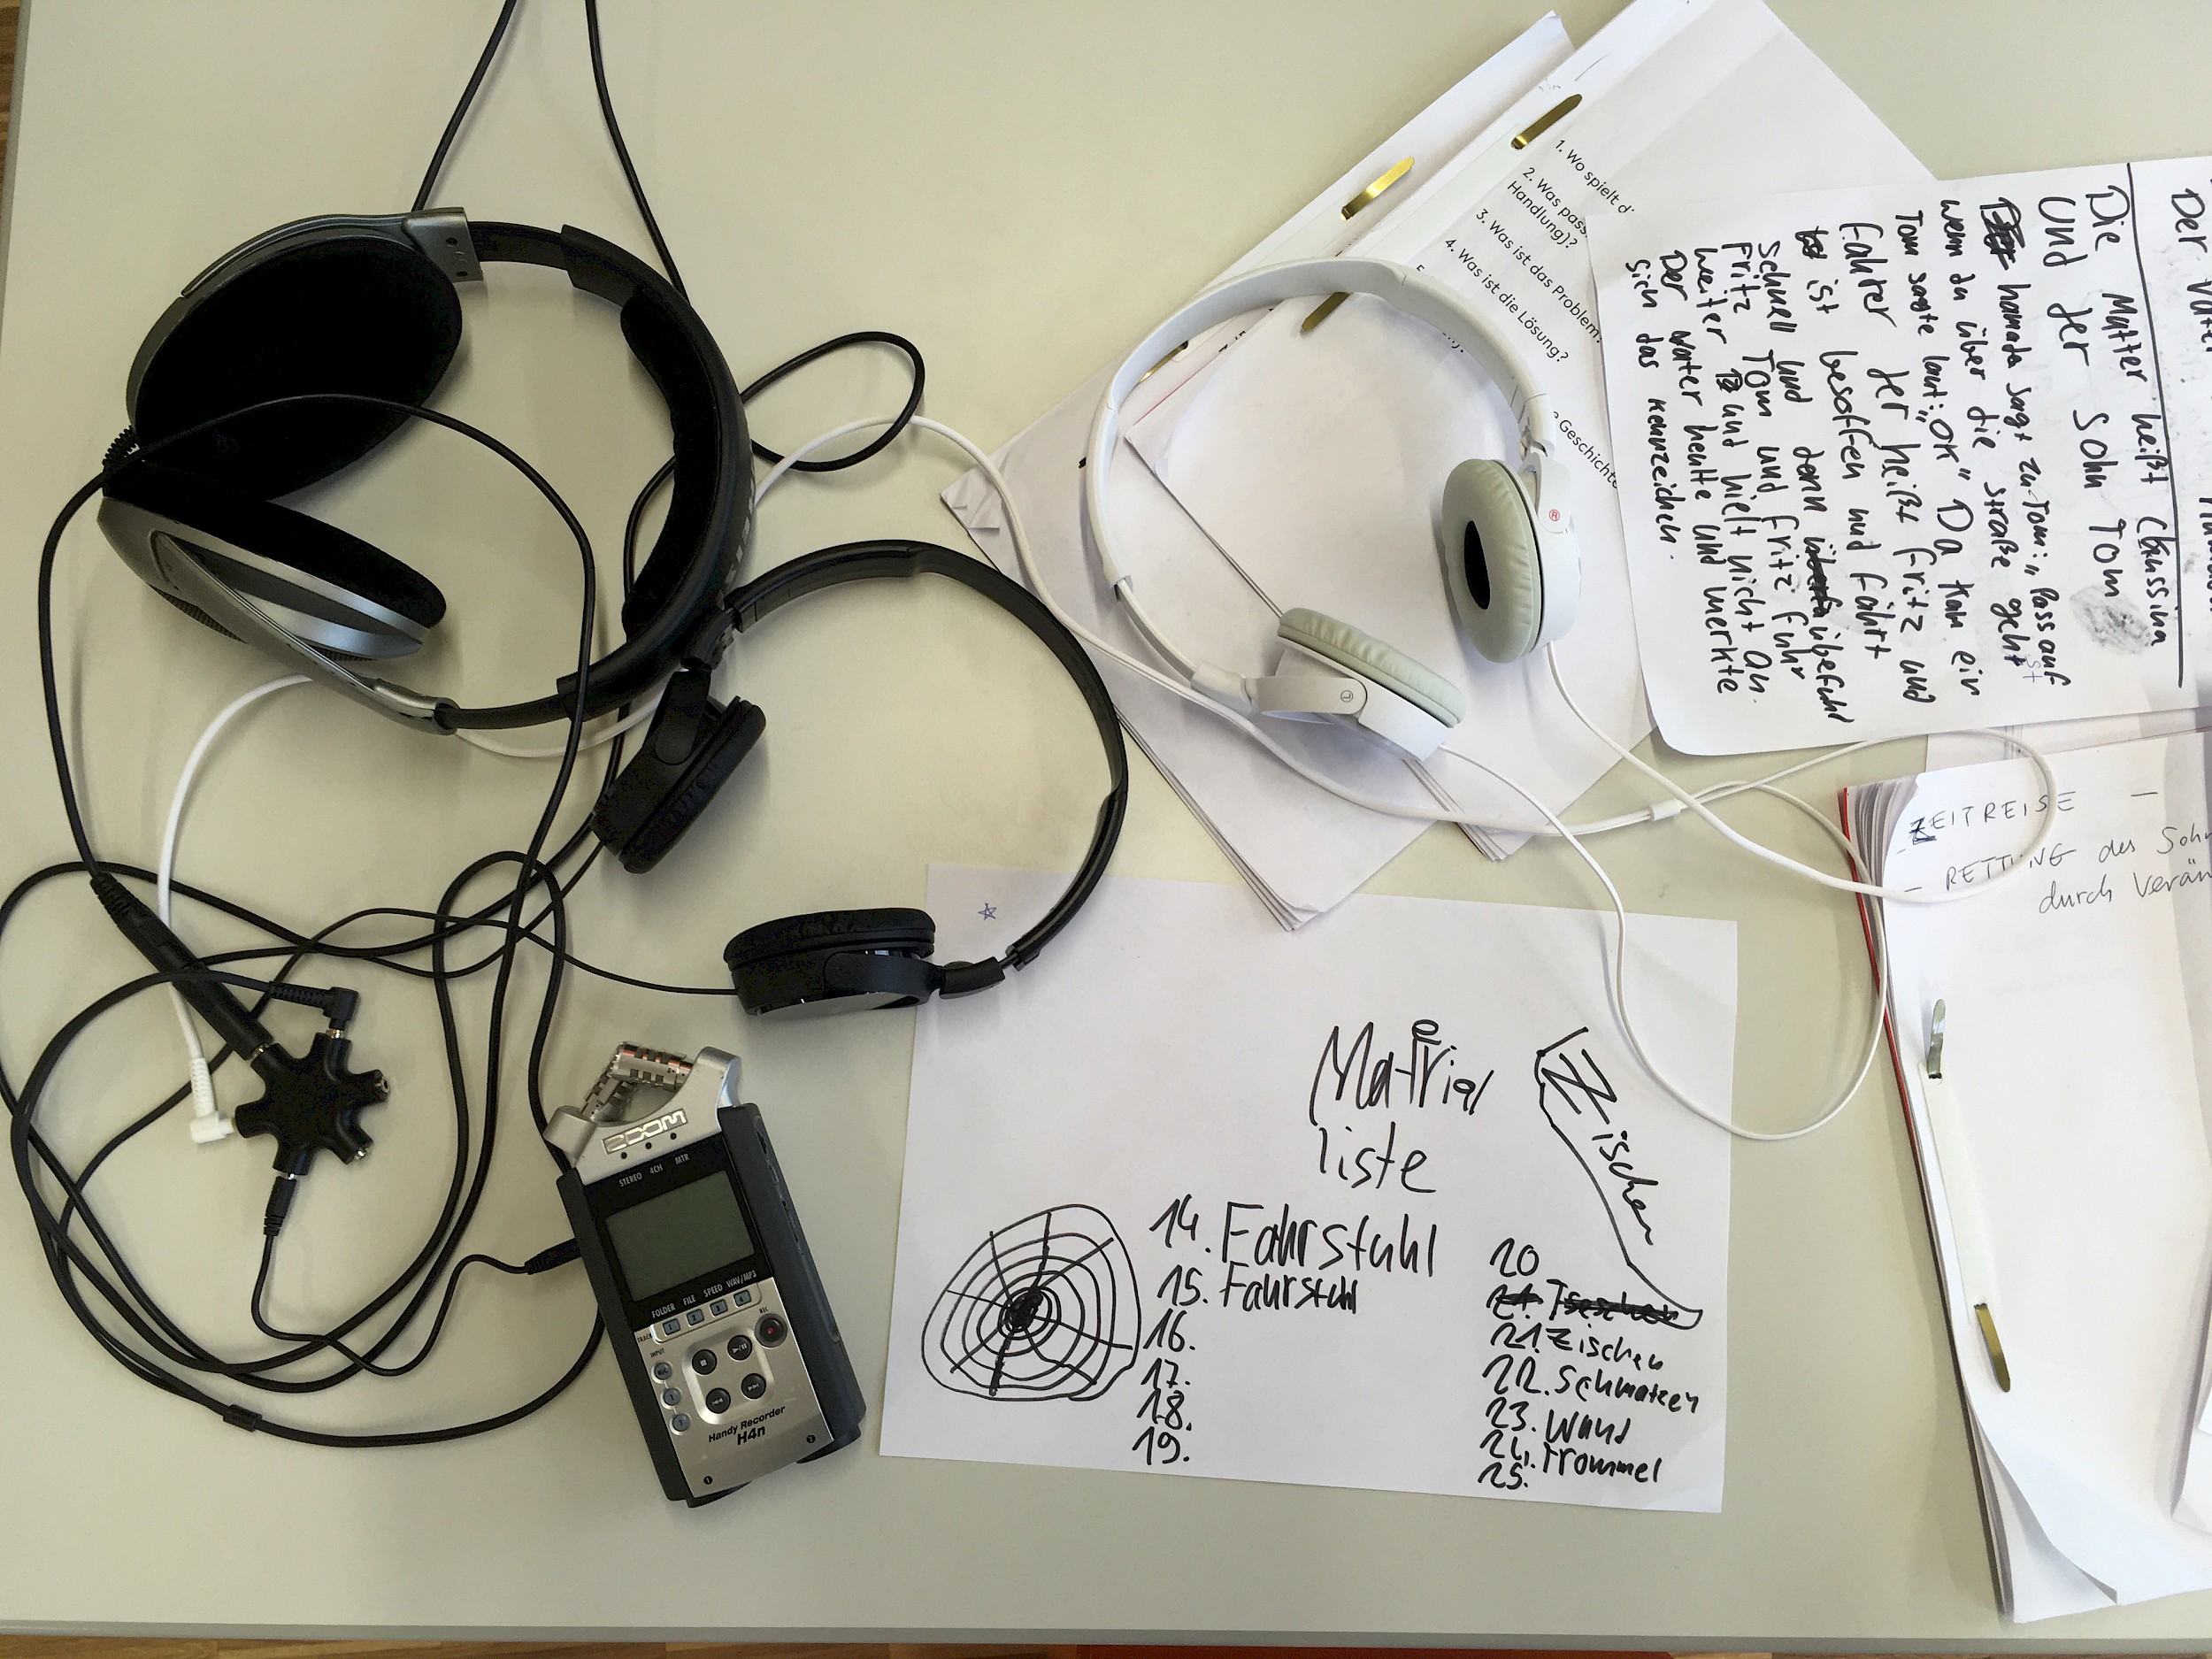 1. Wo spielt d
2. Was pass
Handlung)?
3. Was ist das Problem?
4. Was ist die Lösung?
5
Geschichte
Der Vater
Die Mutter heißt Claussina
Und der Sohn Tom
hamada sagt zu Tom: „Pass auf
wenn du über die straße gehst
Tom sagte laut: „OK" Da kam ein
fahrer der heißt fritz und
ist besoffen und fährt
Schnell und dann übefuhr
Fritz Tom und fritz fuhr
weiter und hielt nicht an
Der water heulte und merkte
sich das kennzeichen.
ZEITREISE –
- RETTUNG des Sohn
durch Verän
Material
liste
Zischen
14. Fahrstuhl
15. Fahrstuhl
16.
17.
18.
19.
20
21. Zischen
22. Schmatzen
23. Wand
24. Trommel
25.
ZOOM
STEREO 4CH MTR
FOLDER FILE SPEED WAV/MP3
1 2 3 4
TRACK
REC
INPUT
MIC
1
2
Handy Recorder
H4n
1
2